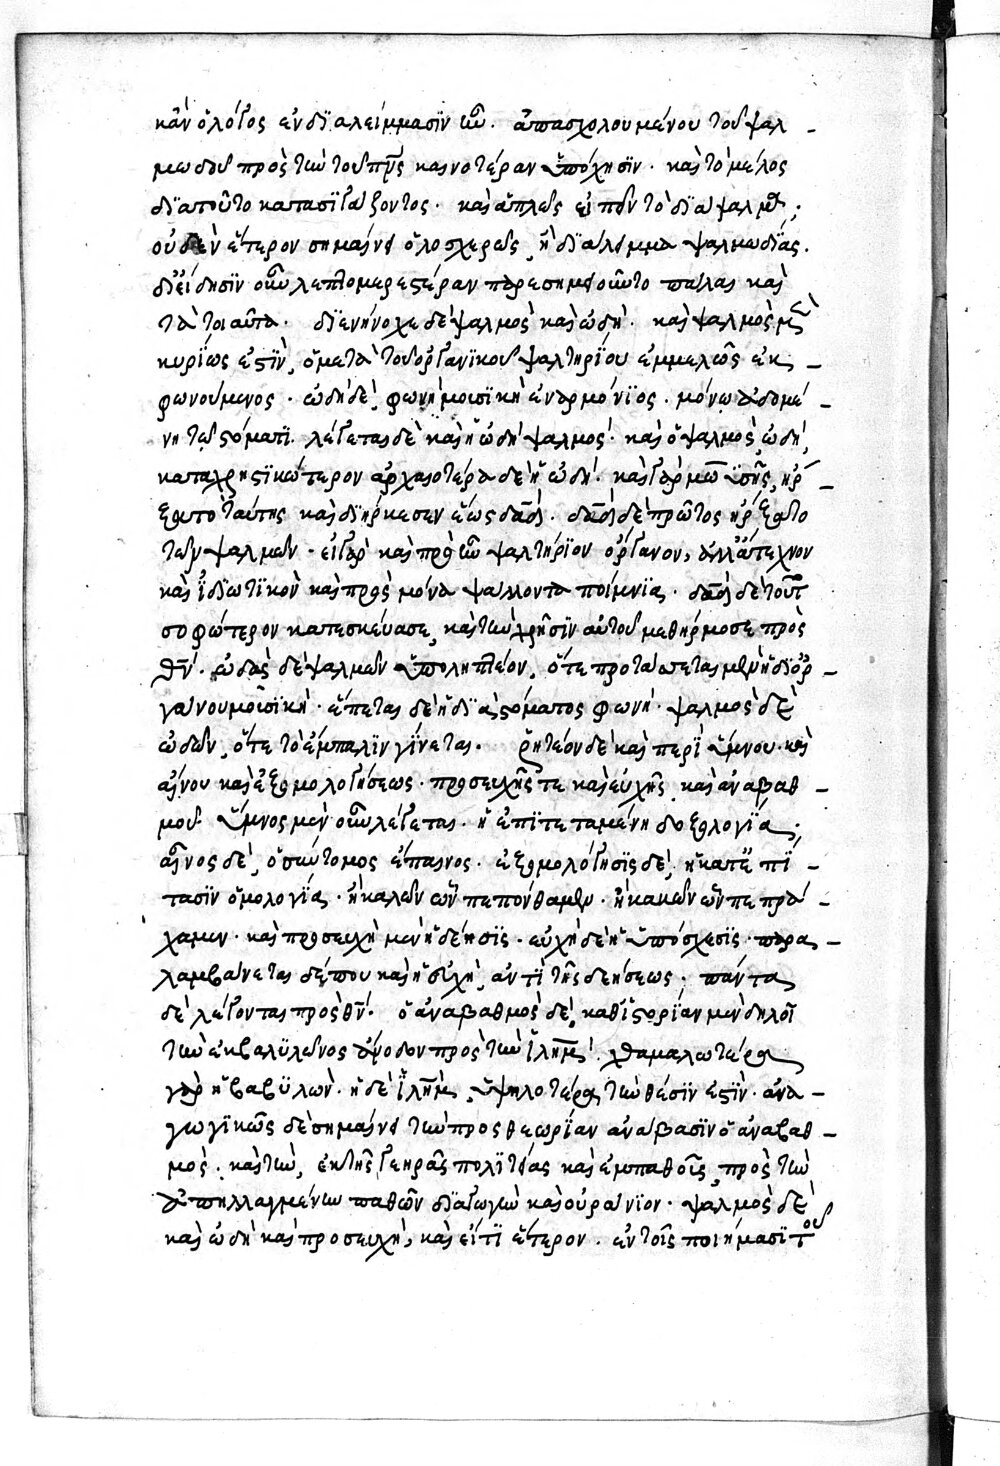 κἂν ὁ λόγος ἐν διαλείμμασιν ὢν. ἀπασχολουμένου τοῦ ψαλ-
μωδοῦ πρὸς τὴν τοῦ πνς καινοτέραν ὑπόχησιν. καὶ τὸ μέλος
διατοῦτο κατασιγάζοντος. καὶ ἁπλῶς εἰπεῖν τὸ διάψαλμα;
οὐδὲν ἕτερον σημαίνει ὁλοσχερῶς, ἢ διάλειμμα ψαλμωδίας.
δι' εἴδησιν οὖν λεπτομερεστέραν παρεσημειοῦτο πάλαι καὶ
τὰ τοιαῦτα. διενήνοχε δὲ ψαλμὸς καὶ ὠδὴ. καὶ ψαλμὸς μὲν
κυρίως ἐστὶν, ὁ μετὰ τοῦ ὀργανικοῦ ψαλτηρίου ἐμμελῶς ἐκ-
φωνούμενος. ὠδὴ δὲ, φωνὴ μουσικὴ ἐναρμόνιος. μόνω ἀδομέ-
νη τῶ στόματι. λέγεται δὲ καὶ ἡ ὠδὴ ψαλμὸς. καὶ ὁ ψαλμὸς, ὠδὴ,
καταχρηστικώτερον ἀρχαιοτέρα δὲ ἡ ὠδὴ. καὶ γὰρ μωϋσῆς, ἤρ-
ξατο ταύτης καὶ διήρκεσεν ἕως δαδ. δαδ δὲ πρῶτος ἤρξατο
τῶν ψαλμῶν. εἰ γὰρ καὶ πρὸ τοῦ ψαλτήριον ὄργανον, ἀλλ' ἄτεχνον
καὶ ἰδιωτικὸν καὶ πρὸς μόνα ψάλλοντα ποίμνια. δαδ δὲ τοῦτο
σοφώτερον κατεσκεύασε, καὶ τὴν χρῆσιν αὐτοῦ μεθήρμοσε πρὸς
θν. ὠδὰς δὲ ψαλμῶν ὑποληπτέον, ὅτε προτάσσεται μὲν ἡ δι' ὀρ-
γάνου μουσικὴ. ἕπεται δὲ ἡ διὰ στόματος φωνὴ. ψαλμὸς δὲ
ὠδῶν, ὅτε τὸ ἔμπαλιν γίνεται. ῥητέον δὲ καὶ περὶ ὕμνου. καὶ
αἴνου καὶ ἐξομολογήσεως. προσευχῆς τε καὶ εὐχῆς, καὶ ἀναβαθ-
μοῦ. ὕμνος μὲν οὖν λέγεται. ἡ ἐπιτεταμένη δοξολογία;
αἶνος δὲ, ὁ σύντομος ἔπαινος. ἐξομολόγησις δὲ, ἡ κατ' ἐπί-
τασιν ὁμολογία. ἢ καλῶν ὧν πεπόνθαμεν. ἢ κακῶν ὧν πεπρά-
χαμεν. καὶ προσευχὴ μὲν ἡ δέησις. εὐχὴ δὲ ἡ ὑπόσχεσις. παρα-
λαμβάνεται δέ που καὶ ἡ εὐχὴ, ἀντὶ τῆς δεήσεως; πάντα
δὲ λέγονται πρὸς θν. ὁ ἀναβαθμὸς δὲ, καθ' ἱστορίαν μὲν δηλοῖ
τὴν ἐκ βαβυλῶνος ἄνοδον πρὸς τὴν ἱλημ. χθαμαλωτέρα
γὰρ ἡ βαβυλὼν. ἡ δὲ ἱλημ, ὑψηλοτέρα τὴν θέσιν ἐστὶν. ἀνα-
γωγικῶς δὲ σημαίνει τὴν πρὸς θεωρίαν ἀνάβασιν ὁ ἀναβαθ-
μὸς. καὶ τὴν, ἐκ τῆς γεηρᾶς πολιτείας καὶ ἐμπαθοῦς, πρὸς τὴν
ἀπηλλαγμένην παθῶν διαγωγὴν καὶ οὐράνιον. ψαλμὸς δὲ
καὶ ὠδὴ καὶ προσευχὴ, καὶ εἴ τι ἕτερον. ἐν τοῖς ποιήμασι τοῦ